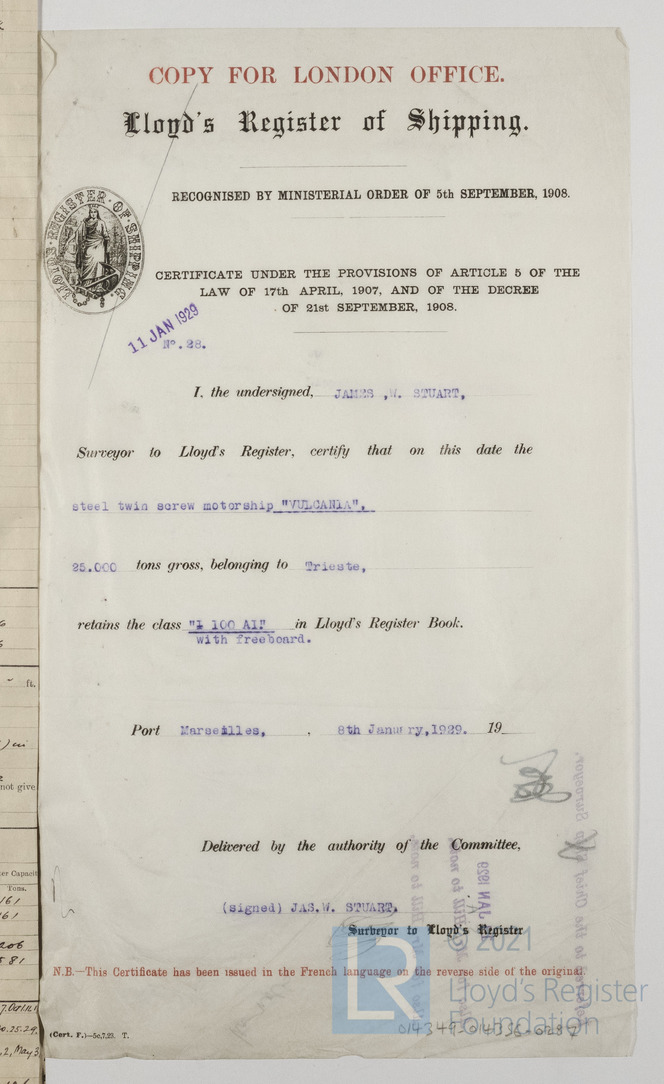 COPY FOR LONDON OFFICE.
Lloyd's Register of Shipping.
RECOGNISED BY MINISTERIAL ORDER OF 5th SEPTEMBER, 1908.
LLOYDS·REGISTER·OF·SHIPPING.
CERTIFICATE UNDER THE PROVISIONS OF ARTICLE 5 OF THE
LAW OF 17th APRIL, 1907, AND OF THE DECREE
OF 21st SEPTEMBER, 1908.
11 JAN 1929
Nº.28.
I, the undersigned, JAMES ,W. STUART,
Surveyor to Lloyd's Register, certify that on this date the
steel twin screw motorship "VULCANIA",
25.000 tons gross, belonging to Trieste,
retains the class "1 100 AI" in Lloyd's Register Book.
with freeboard.
Port Marseilles, , 8th January,1929. 19
Delivered by the authority of the Committee,
(signed) JAS.W. STUART.
Surveyor to Lloyd's Register
N.B.—This Certificate has been issued in the French language on the reverse side of the original.
(Cert. F.)—50,7,23. T.
© 2021
LR
Lloyd's Register
Foundation
ft.
not give
Tons.
161
161
206
581